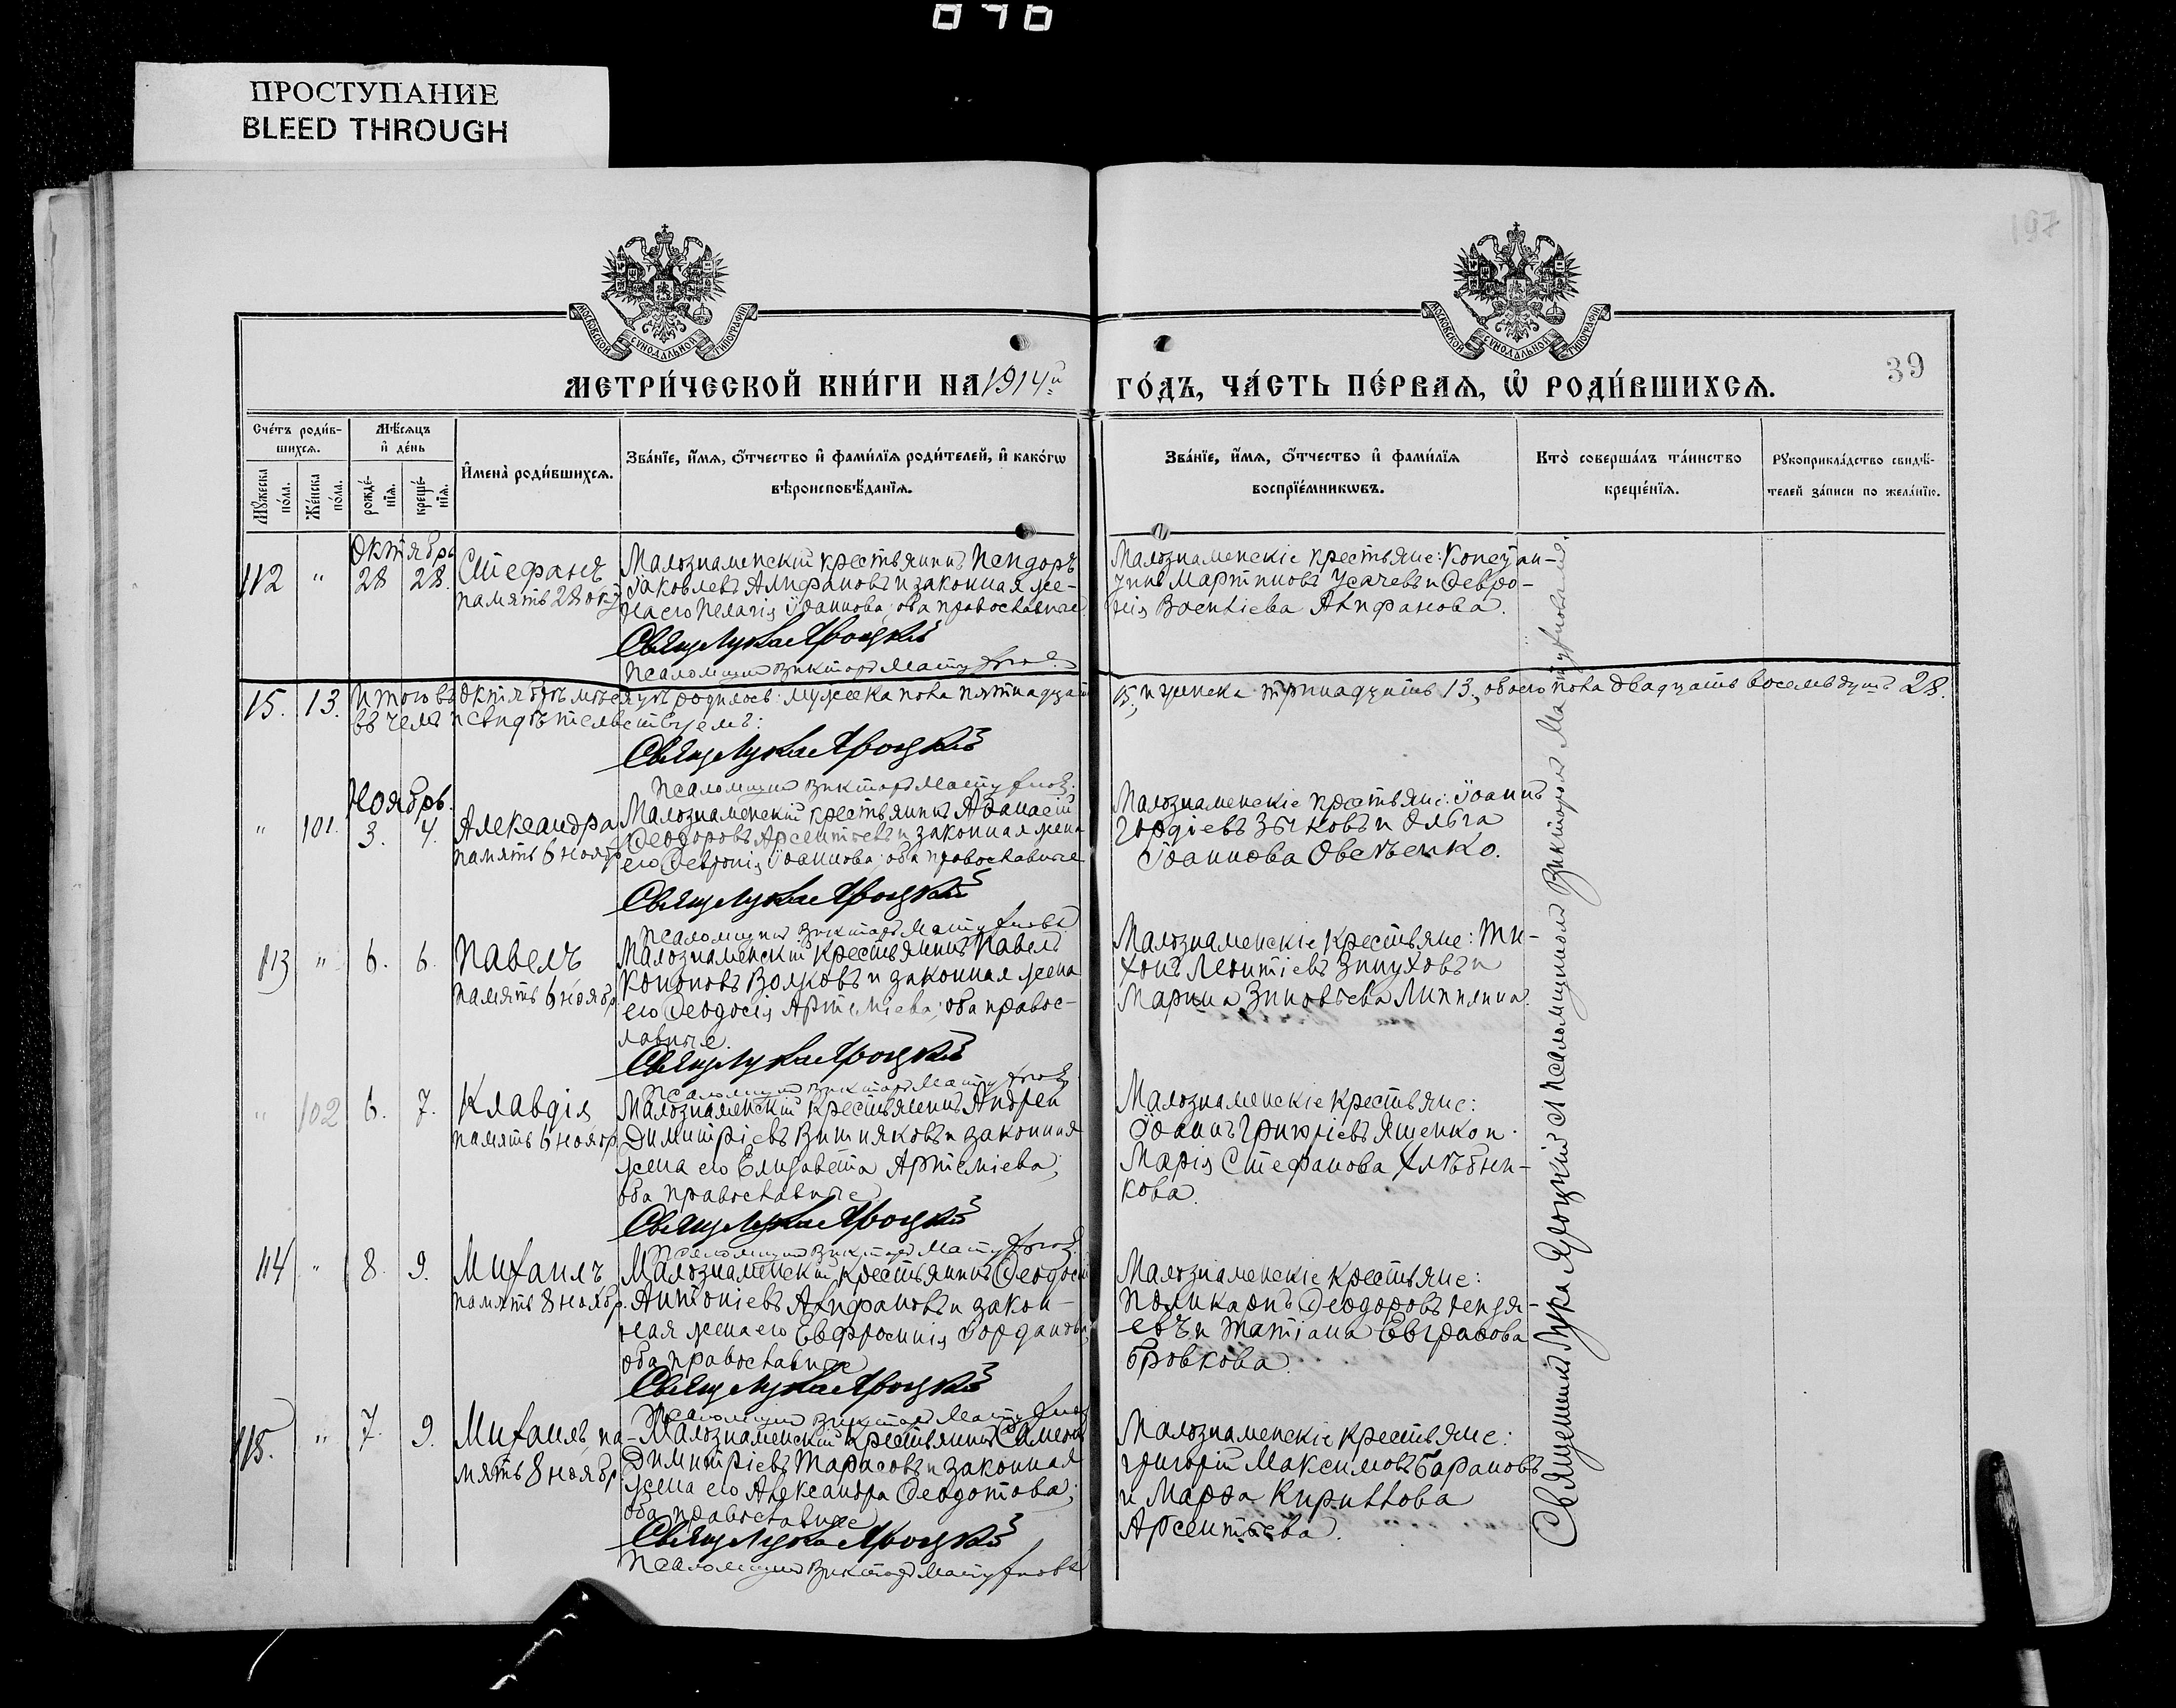 070
ПРОСТУПАНИЕ
BLEED THROUGH
197
МОСКОВСКОЙ СѴНОДАЛЬНОЙ ТИПОГРАФІИ
МОСКОВСКОЙ СѴНОДАЛЬНОЙ ТИПОГРАФІИ
39
МЕТРИ́ЧЕСКОЙ КНИ́ГИ НА 1914й ГО́ДЪ, ЧА́СТЬ ПЕ́РВАѦ, Ѡ РОДИ́ВШИХСѦ.
Сче́тъ роди́в-
шихсѧ.
Мꙋ́жеска по́ла.
Же́нска по́ла.
Мѣ́сѧцъ
и҆ де́нь
рожде́-
нїѧ.
креще́-
нїѧ.
И҆мена̀ роди́вшихсѧ.
Зва́нїе, и҆́мѧ, ѻ҆́тчество и҆ фами́лїѧ роди́телей, и҆ како́гѡ
вѣроисповѣ́данїѧ.
Зва́нїе, и҆́мѧ, ѻ҆́тчество и҆ фами́лїѧ
воспрїе́мникѡвъ.
Кто̀ соверша́лъ та́инство
креще́нїѧ.
Рꙋкоприкла́дство свидѣ́-
телей за́писи по жела́нїю.
Октябрь
112 " 28 28. Стефанъ
память 28 окт
Малознаменскій крестьянинъ Исидоръ
Іаковлевъ Алифановъ и законная же-
на его Пелагія Іоаннова; оба православные
Свящ Лука Яроцкій
Псаломщикъ Викторъ Матуфновъ
Малознаменскіе крестьяне: Констан-
тинъ Мартиновъ Усачевъ и Февро-
нія Васильева Алифанова.
15. 13. Итого въ октябрѣ мѣсяцѣ родилось: мужеска пола пятнадцать 15, и женска тринадцать 13, обоего пола двадцать восемь душъ 28.
въ чемъ и свидѣтельствуемъ:
Свящ Лука Яроцкій
Псаломщикъ Викторъ Матуфновъ
Ноябрь.
" 101. 3. 4. Александра
память 6 ноябр
Малознаменскій крестьянинъ Аѳанасій
Ѳеодоровъ Арсентьевъ и законная жена
его Февронія Іоаннова; оба православные
Свящ Лука Яроцкій
Псаломщикъ Викторъ Матуфновъ
Малознаменскіе крестьяне: Іоаннъ
Гордіевъ Зыковъ и Ольга
Іоаннова Овсѣенко.
113 " 6. 6. Павелъ
память 6 ноябр
Малознаменскій крестьянинъ Павелъ
Кононовъ Волковъ и законная жена
его Ѳеодосія Артеміева; оба правос-
лавные.
Свящ Лука Яроцкій
Псаломщикъ Викторъ Матуфновъ
Малознаменскіе крестьяне: Ти-
хонъ Леонтіевъ Зинуховъ и
Марина Зиновьева Липпянина.
" 102 6. 7. Клавдія
память 6 ноябр.
Малознаменскій крестьянинъ Андрей
Димитріевъ Вишняковъ и законная
жена его Елизавета Артеміева;
оба православные
Свящ Лука Яроцкій
Псаломщикъ Викторъ Матуфновъ
Малознаменскіе крестьяне:
Іоаннъ Григоріевъ Ященко и
Марія Стефанова Хлѣбни-
кова.
114 " 8. 9. Михаилъ
память 8 ноябр.
Малознаменскій крестьянинъ Ѳеодосій
Антоніевъ Алифановъ и закон-
ная жена его Евфросинія Іорданова;
оба православные
Свящ Лука Яроцкій
Псаломщикъ Викторъ Матуфновъ
Малознаменскіе крестьяне:
Поликарпъ Ѳеодоровъ
и Татіана Евграфова
Бровкова.
115. " 7. 9. Михаилъ па-
мять 8 ноябр
Малознаменскій крестьянинъ Симеонъ
Димитріевъ Тарасовъ и законная
жена его Александра Ѳеодотова;
оба православные
Свящ Лука Яроцкій
Псаломщикъ Викторъ Матуфновъ
Малознаменскіе крестьяне:
Григорій Максимовъ Барановъ
и Марѳа Кириллова
Арсентьева.
Священникъ Лука Яроцкій съ Псаломщикомъ Викторомъ Матуфновымъ.